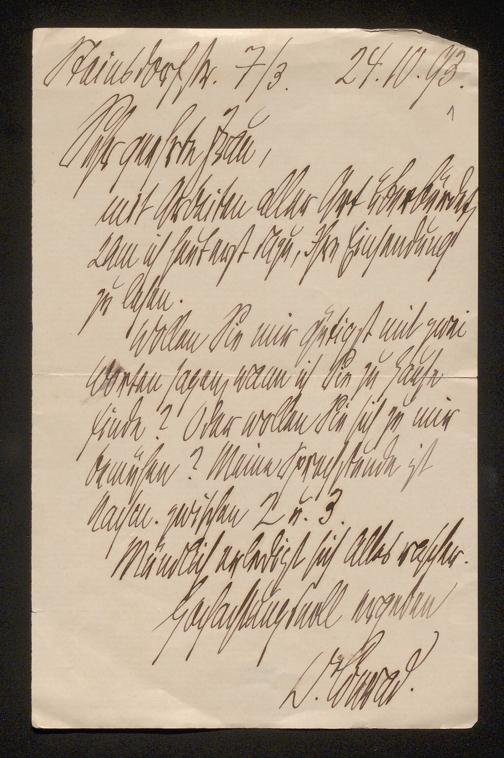 Steinsdorfstr. 7/3. 24.10.93.
Sehr geehrte Frau,
mit Arbeiten aller Art überbürdet,
kam ich heut erst dazu, Ihre Einsendung
zu lesen.
Wollen Sie mir gütigst mit zwei
Worten sagen, wann ich Sie zu Hause
finde? Oder wollen Sie sich zu mir
bemühen? Meine Sprechstunde ist
Nachm. zwischen 2 u. 3.
Mündlich erledigt sich Alles rascher.
Hochachtungsvoll ergeben
Conrad.